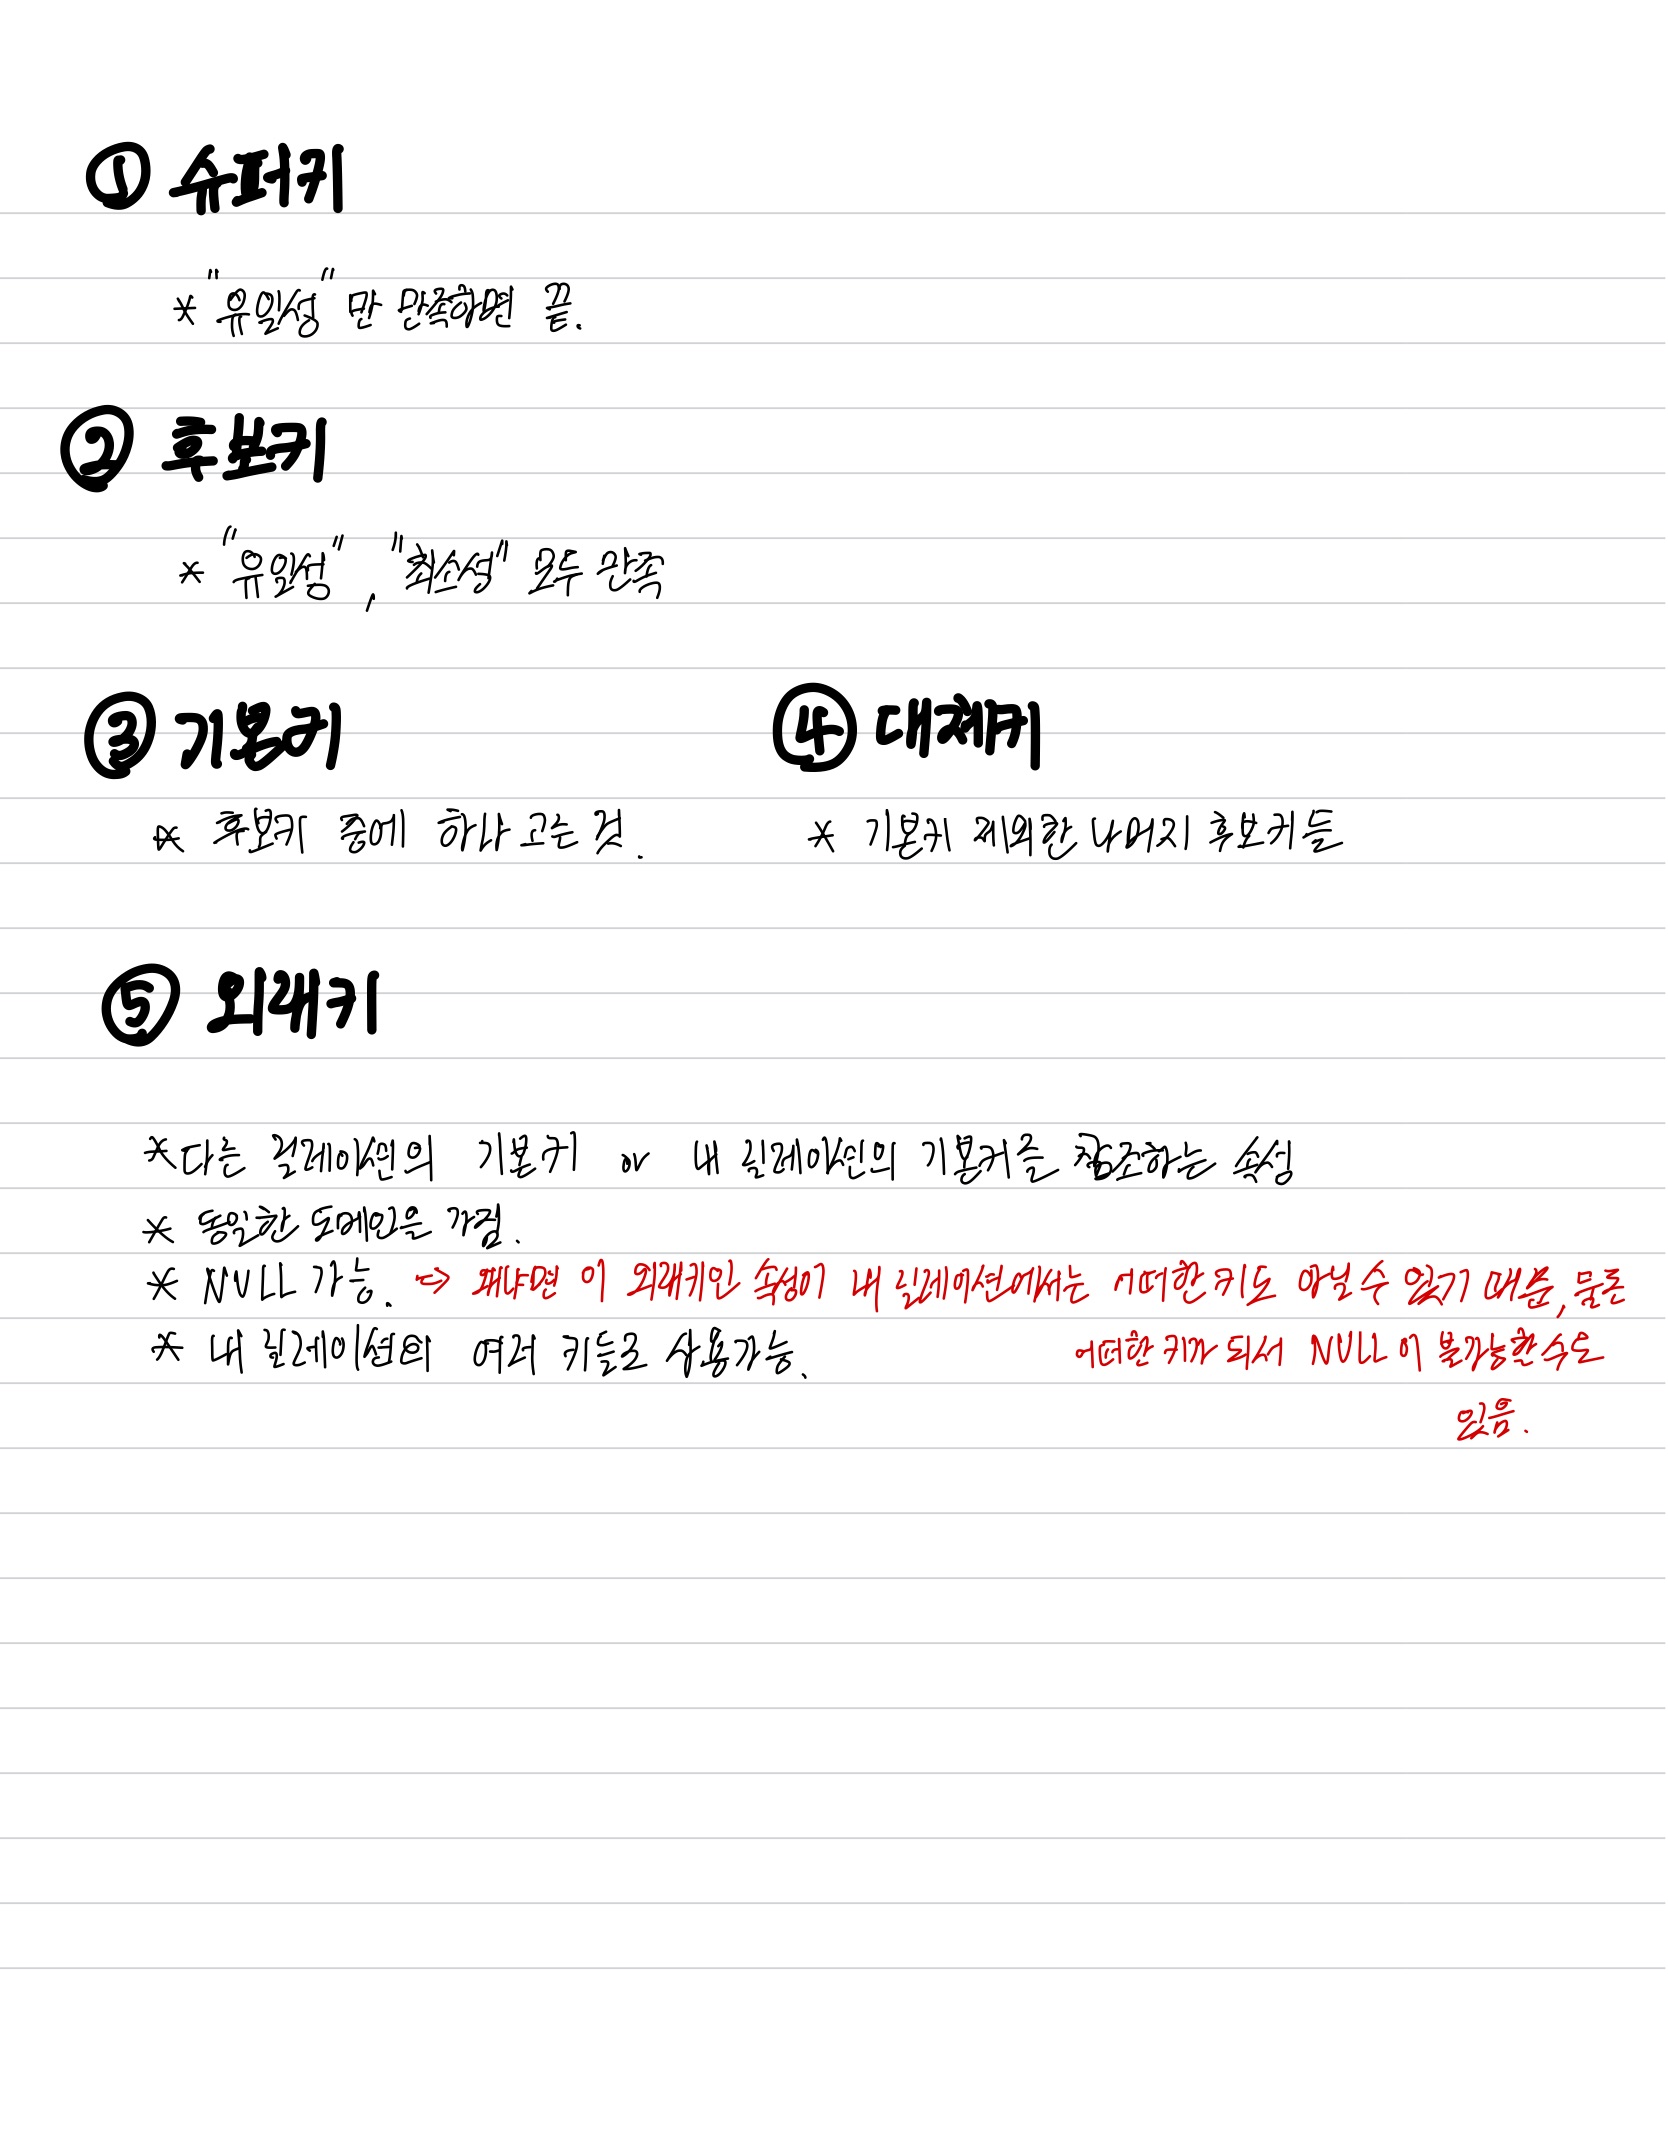 ① 슈퍼키
* "유일성" 만 만족하면 끝.
② 후보키
* "유일성", "최소성" 모두 만족
③ 기본키
* 후보키 중에 하나 고른 것.
④ 대체키
* 기본키 제외한 나머지 후보키들
⑤ 외래키
* 다른 릴레이션의 기본키 or 내 릴레이션의 기본키를 참조하는 속성
* 동일한 도메인을 가짐.
* NULL 가능. => 왜냐면 이 외래키인 속성이 내 릴레이션에서는 어떠한 키도 아닐 수 있기 때문, 물론
어떠한 키가 되서 NULL이 불가능할 수도
있음.
* 내 릴레이션의 여러 키들로 사용가능.